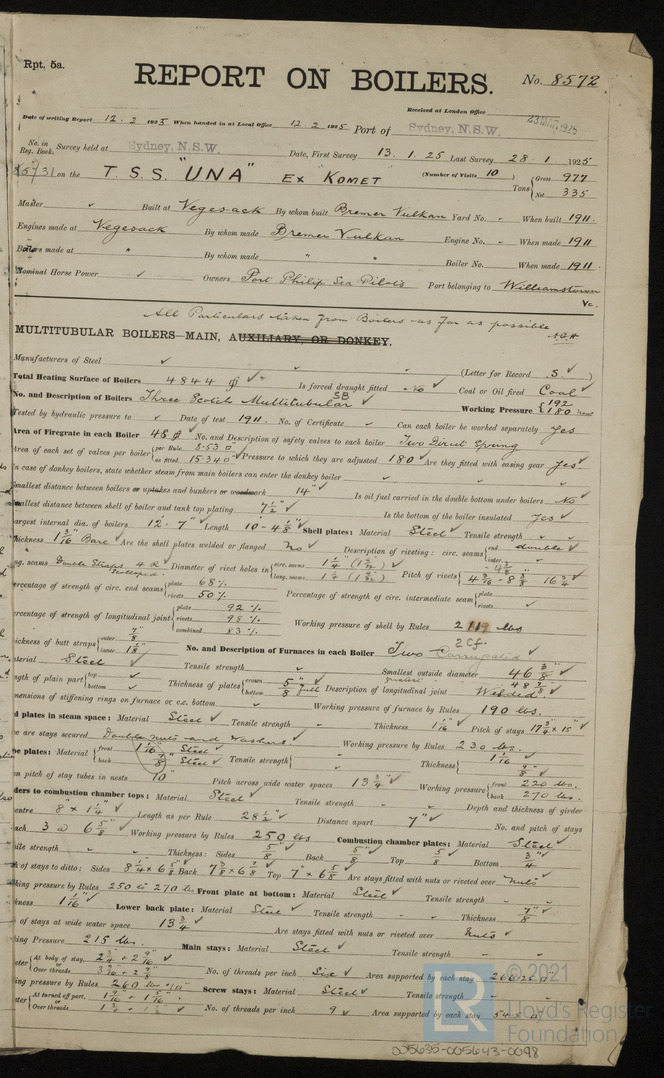 Rpt. 5a.
REPORT ON BOILERS.
No. 8572
Received at London Office 23 MAR 1925
Date of writing Report 12. 2 1925 When handed in at Local Office 12. 2 1925 Port of Sydney, N.S.W.
No. in Reg. Book. Survey held at Sydney, N.S.W. Date, First Survey 13. 1. 25 Last Survey 28. 1 1925
(Number of Visits 10)
on the T. S. S. "UNA" Ex "KOMET" Tons { Gross 977
Net 335
Master " Built at Vegesack By whom built Bremer Vulkan Yard No. - When built 1911
Engines made at Vegesack By whom made Bremer Vulkan Engine No. - When made 1911
Boilers made at " By whom made " " Boiler No. When made 1911.
Nominal Horse Power ✓ Owners Port Philip Sea Pilots Port belonging to Williamstown
Vc.
All Particulars taken from Boilers as far as possible
MULTITUBULAR BOILERS MAIN, AUXILIARY, OR DONKEY.
Manufacturers of Steel ✓ (Letter for Record S ✓)
Total Heating Surface of Boilers 4844 Is forced draught fitted No ✓ Coal or Oil fired Coal ✓
No. and Description of Boilers Three Scotch Multitubular SB Working Pressure { 192
180
Tested by hydraulic pressure to ✓ Date of test 1911. No. of Certificate Can each boiler be worked separately Yes
Area of Firegrate in each Boiler 48 No. and Description of safety valves to each boiler Two Direct Spring
Area of each set of valves per boiler { per Rule 8.53
as fitted 15.340 Pressure to which they are adjusted 180 Are they fitted with easing gear Yes
In case of donkey boilers, state whether steam from main boilers can enter the donkey boiler
Smallest distance between boilers or uptakes and bunkers or woodwork 14" Is oil fuel carried in the double bottom under boilers No
Smallest distance between shell of boiler and tank top plating 7 1/2" Is the bottom of the boiler insulated Yes
Largest internal dia. of boilers 12' - 7" Length 10 - 4 Shell plates: Material Steel Tensile strength
Thickness 1 3/16" Bare Are the shell plates welded or flanged No Description of riveting: circ. seams { end double
inter.
long. seams Double Straps 4 R Diameter of rivet holes in { circ. seams 1 1/4
long. seams 1 1/4 Pitch of rivets {
Percentage of strength of circ. end seams { plate 68%
rivets 50% Percentage of strength of circ. intermediate seam { plate
rivets
Percentage of strength of longitudinal joint { plate 92 %
rivets 98 %
combined 83 % Working pressure of shell by Rules lbs
Thickness of butt straps { outer 7/8
inner No. and Description of Furnaces in each Boiler Two 2 Cf. Corrugated
Material Steel Tensile strength Smallest outside diameter 46 3/8"
Length of plain part { top
bottom Thickness of plates { crown
bottom 5/8" full Description of longitudinal joint Welded
Dimensions of stiffening rings on furnace or c.c. bottom Working pressure of furnace by Rules 190 lbs.
End plates in steam space: Material Steel Tensile strength Thickness 1 1/16" Pitch of stays 17 3/4 x 15"
How are stays secured Double nuts and washers Working pressure by Rules 230 lbs.
Tube plates: Material { front Steel
back Steel Tensile strength Thickness { 1 1/16"
7/8"
Mean pitch of stay tubes in nests 10" Pitch across wide water spaces 13 3/4" Working pressure { front 220 lbs.
back 270 lbs.
Girders to combustion chamber tops: Material Steel Tensile strength Depth and thickness of girder
at centre 8" x 1 1/4" Length as per Rule 28 1/2" Distance apart 7" No. and pitch of stays
in each 3 @ 6 5/8" Working pressure by Rules 250 lbs Combustion chamber plates: Material Steel
Tensile strength Thickness: Sides 5/8" Back 5/8" Top 5/8" Bottom 3/4"
Pitch of stays to ditto: Sides 8 1/4 x 6 5/8" Back 7 3/8 x 6 7/8" Top 7" x 6 5/8" Are stays fitted with nuts or riveted over nuts
Working pressure by Rules 250 to 270 lbs Front plate at bottom: Material Steel Tensile strength
Thickness 1 1/16" Lower back plate: Material Steel Tensile strength Thickness 7/8"
Pitch of stays at wide water space 13 3/4" Are stays fitted with nuts or riveted over Nuts
Working Pressure 215 lbs. Main stays: Material Steel Tensile strength
Diameter { At body of stay, 2 3/4 + 2 9/16"
or Over threads No. of threads per inch Six Area supported by each stay
Working pressure by Rules 260 lbs Screw stays: Material Steel Tensile strength
Diameter { At turned off part,
or Over threads No. of threads per inch 9 Area supported by each stay
© 2021
LR
Lloyd's Register
Foundation
005635-005643-0098